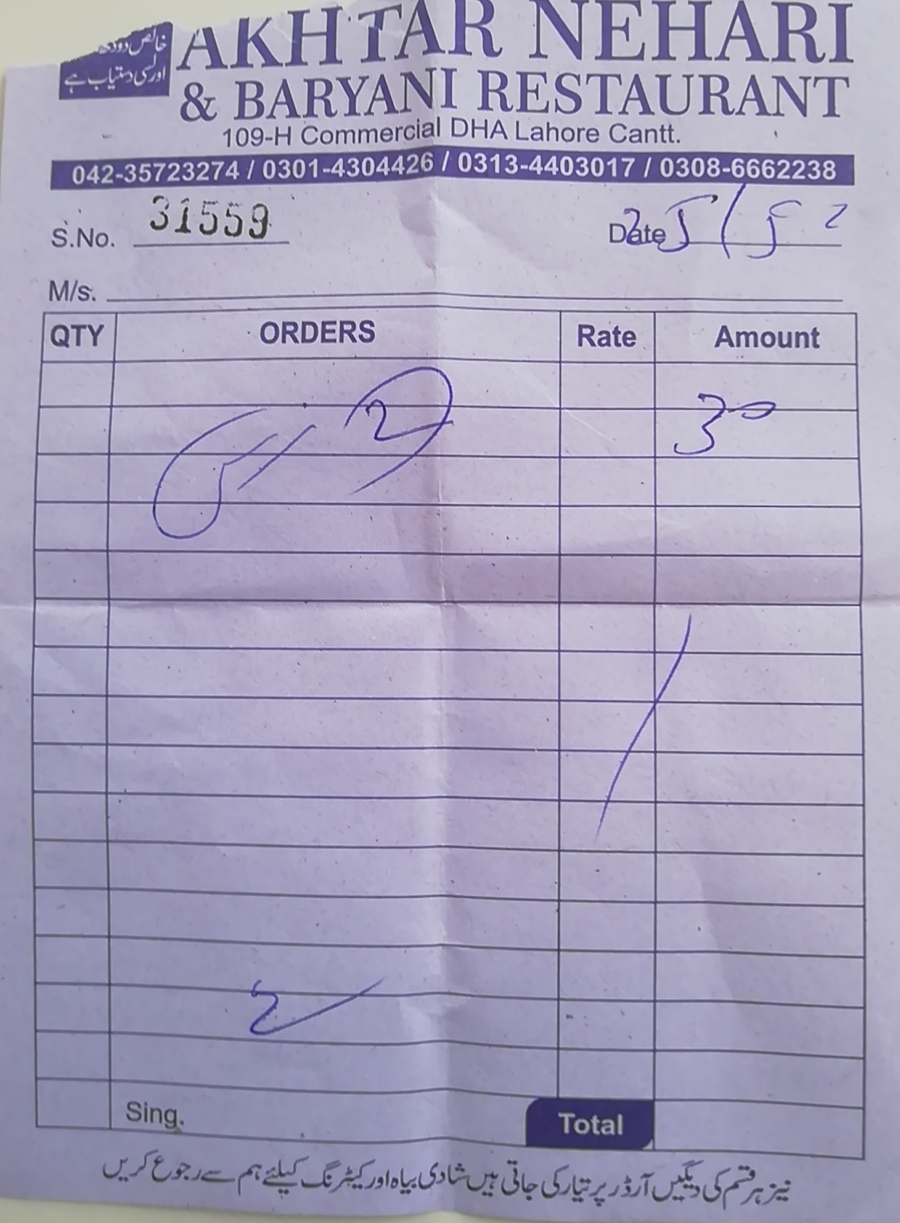 خالص دودھ
اور لسی دستیاب ہے
AKHTAR NEHARI
& BARYANI RESTAURANT
109-H Commercial DHA Lahore Cantt.
042-35723274 / 0301-4304426 / 0313-4403017 / 0308-6662238
S.No. 31559 Date
M/s.
QTY ORDERS Rate Amount
2 30
Sing. Total
نیز ہر قسم کی دیگیں آرڈر پر تیار کی جاتی ہیں شادی بیاہ اور کیٹرنگ کیلئے ہم سے رجوع کریں